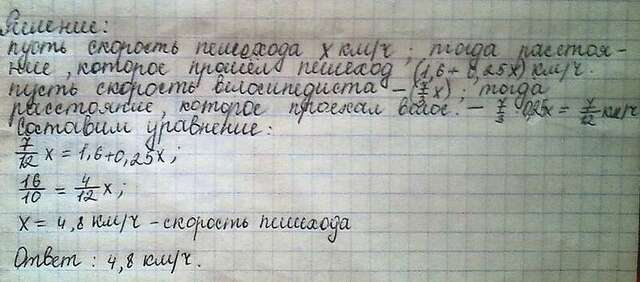 Решение:
пусть скорость пешехода x км/ч; тогда расстоя-
ние, которое прошёл пешеход (1,6+0,25x) км/ч.
пусть скорость велосипедиста – (7/3 x); тогда
расстояние, которое проехал велос. – 7/3 · 0,25x = 7/12 км/ч
Составим уравнение:
7/12 x = 1,6+0,25x;
16/10 = 4/12 x;
x = 4,8 км/ч – скорость пешехода
Ответ: 4,8 км/ч.